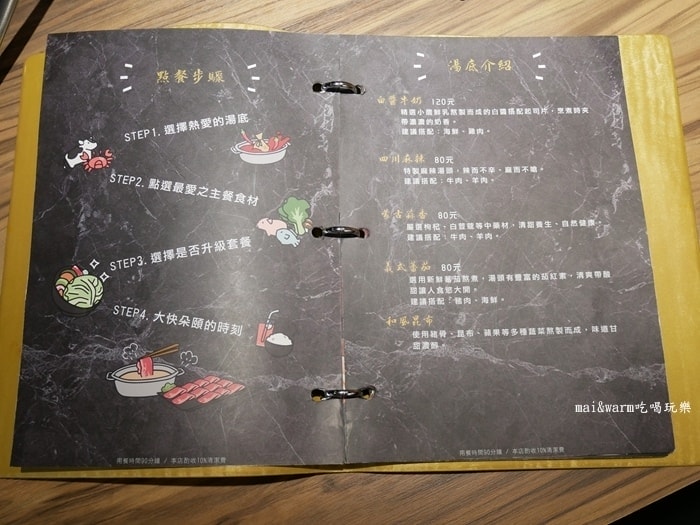 點餐步驟
STEP1. 選擇熱愛的湯底
STEP2. 點選最愛之主餐食材
STEP3. 選擇是否升級套餐
STEP4. 大快朵頤的時刻
用餐時間90分鐘 / 享店酌收10%清潔費
湯底介紹
白醬牛奶 120元
精選小農鮮乳熬製而成的白醬搭配起司片，烹煮時夾
帶濃濃的奶香。
建議搭配：海鮮、雞肉。
四川麻辣 80元
特製麻辣湯頭，辣而不辛、麻而不嗆。
建議搭配：牛肉、羊肉。
蒙古蒜香 80元
嚴選枸杞、白荳蔻等中藥材，清甜養生、自然健康。
建議搭配：牛肉、羊肉。
義式番茄 80元
選用新鮮番茄熬煮，湯頭有豐富的茄紅素，清爽帶酸
甜讓人食慾大開。
建議搭配：豬肉、海鮮。
和風昆布
使用豬骨、昆布、蘋果等多種蔬菜熬製而成，味道甘
甜濃醇。
用餐時間90分鐘 / 享店酌收10%清潔費
mai&warm吃喝玩樂